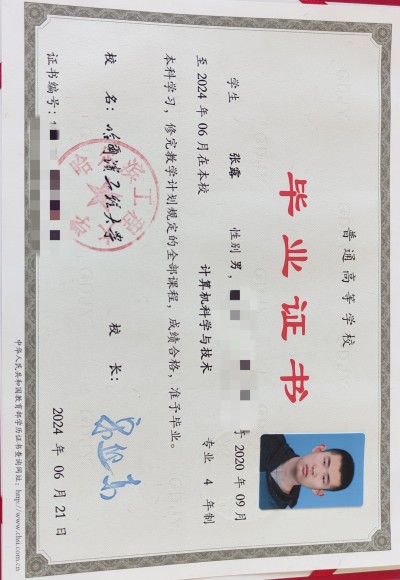 普通高等学校
毕业证书
学生 张露 性别 男， 年 2020 年 09 月
至 2024 年 06 月在本校 计算机科学与技术 专业 4 年制
本科学习，修完教学计划规定的全部课程，成绩合格，准予毕业。
校 名：哈尔滨工程大学 校 长：
证书编号：1 2024 年 06 月 21 日
中华人民共和国教育部学历证书查询网址：http://www.chsi.com.cn